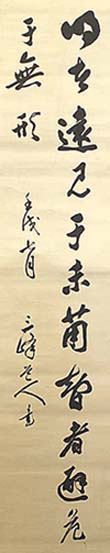 明者遠見于未萌智者避危
于無形
壬戌 三峰 人書